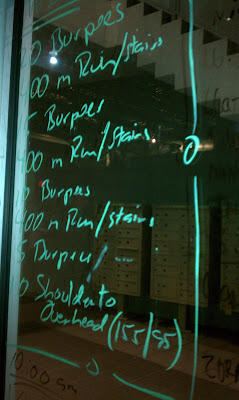 0 Burpees
400 m Run/stairs
5 Burpees
400 m Run/stairs
0 Burpees
400 m Run/stairs
5 Burpees
0 Shoulder to
Overhead (155/95)
10:00am